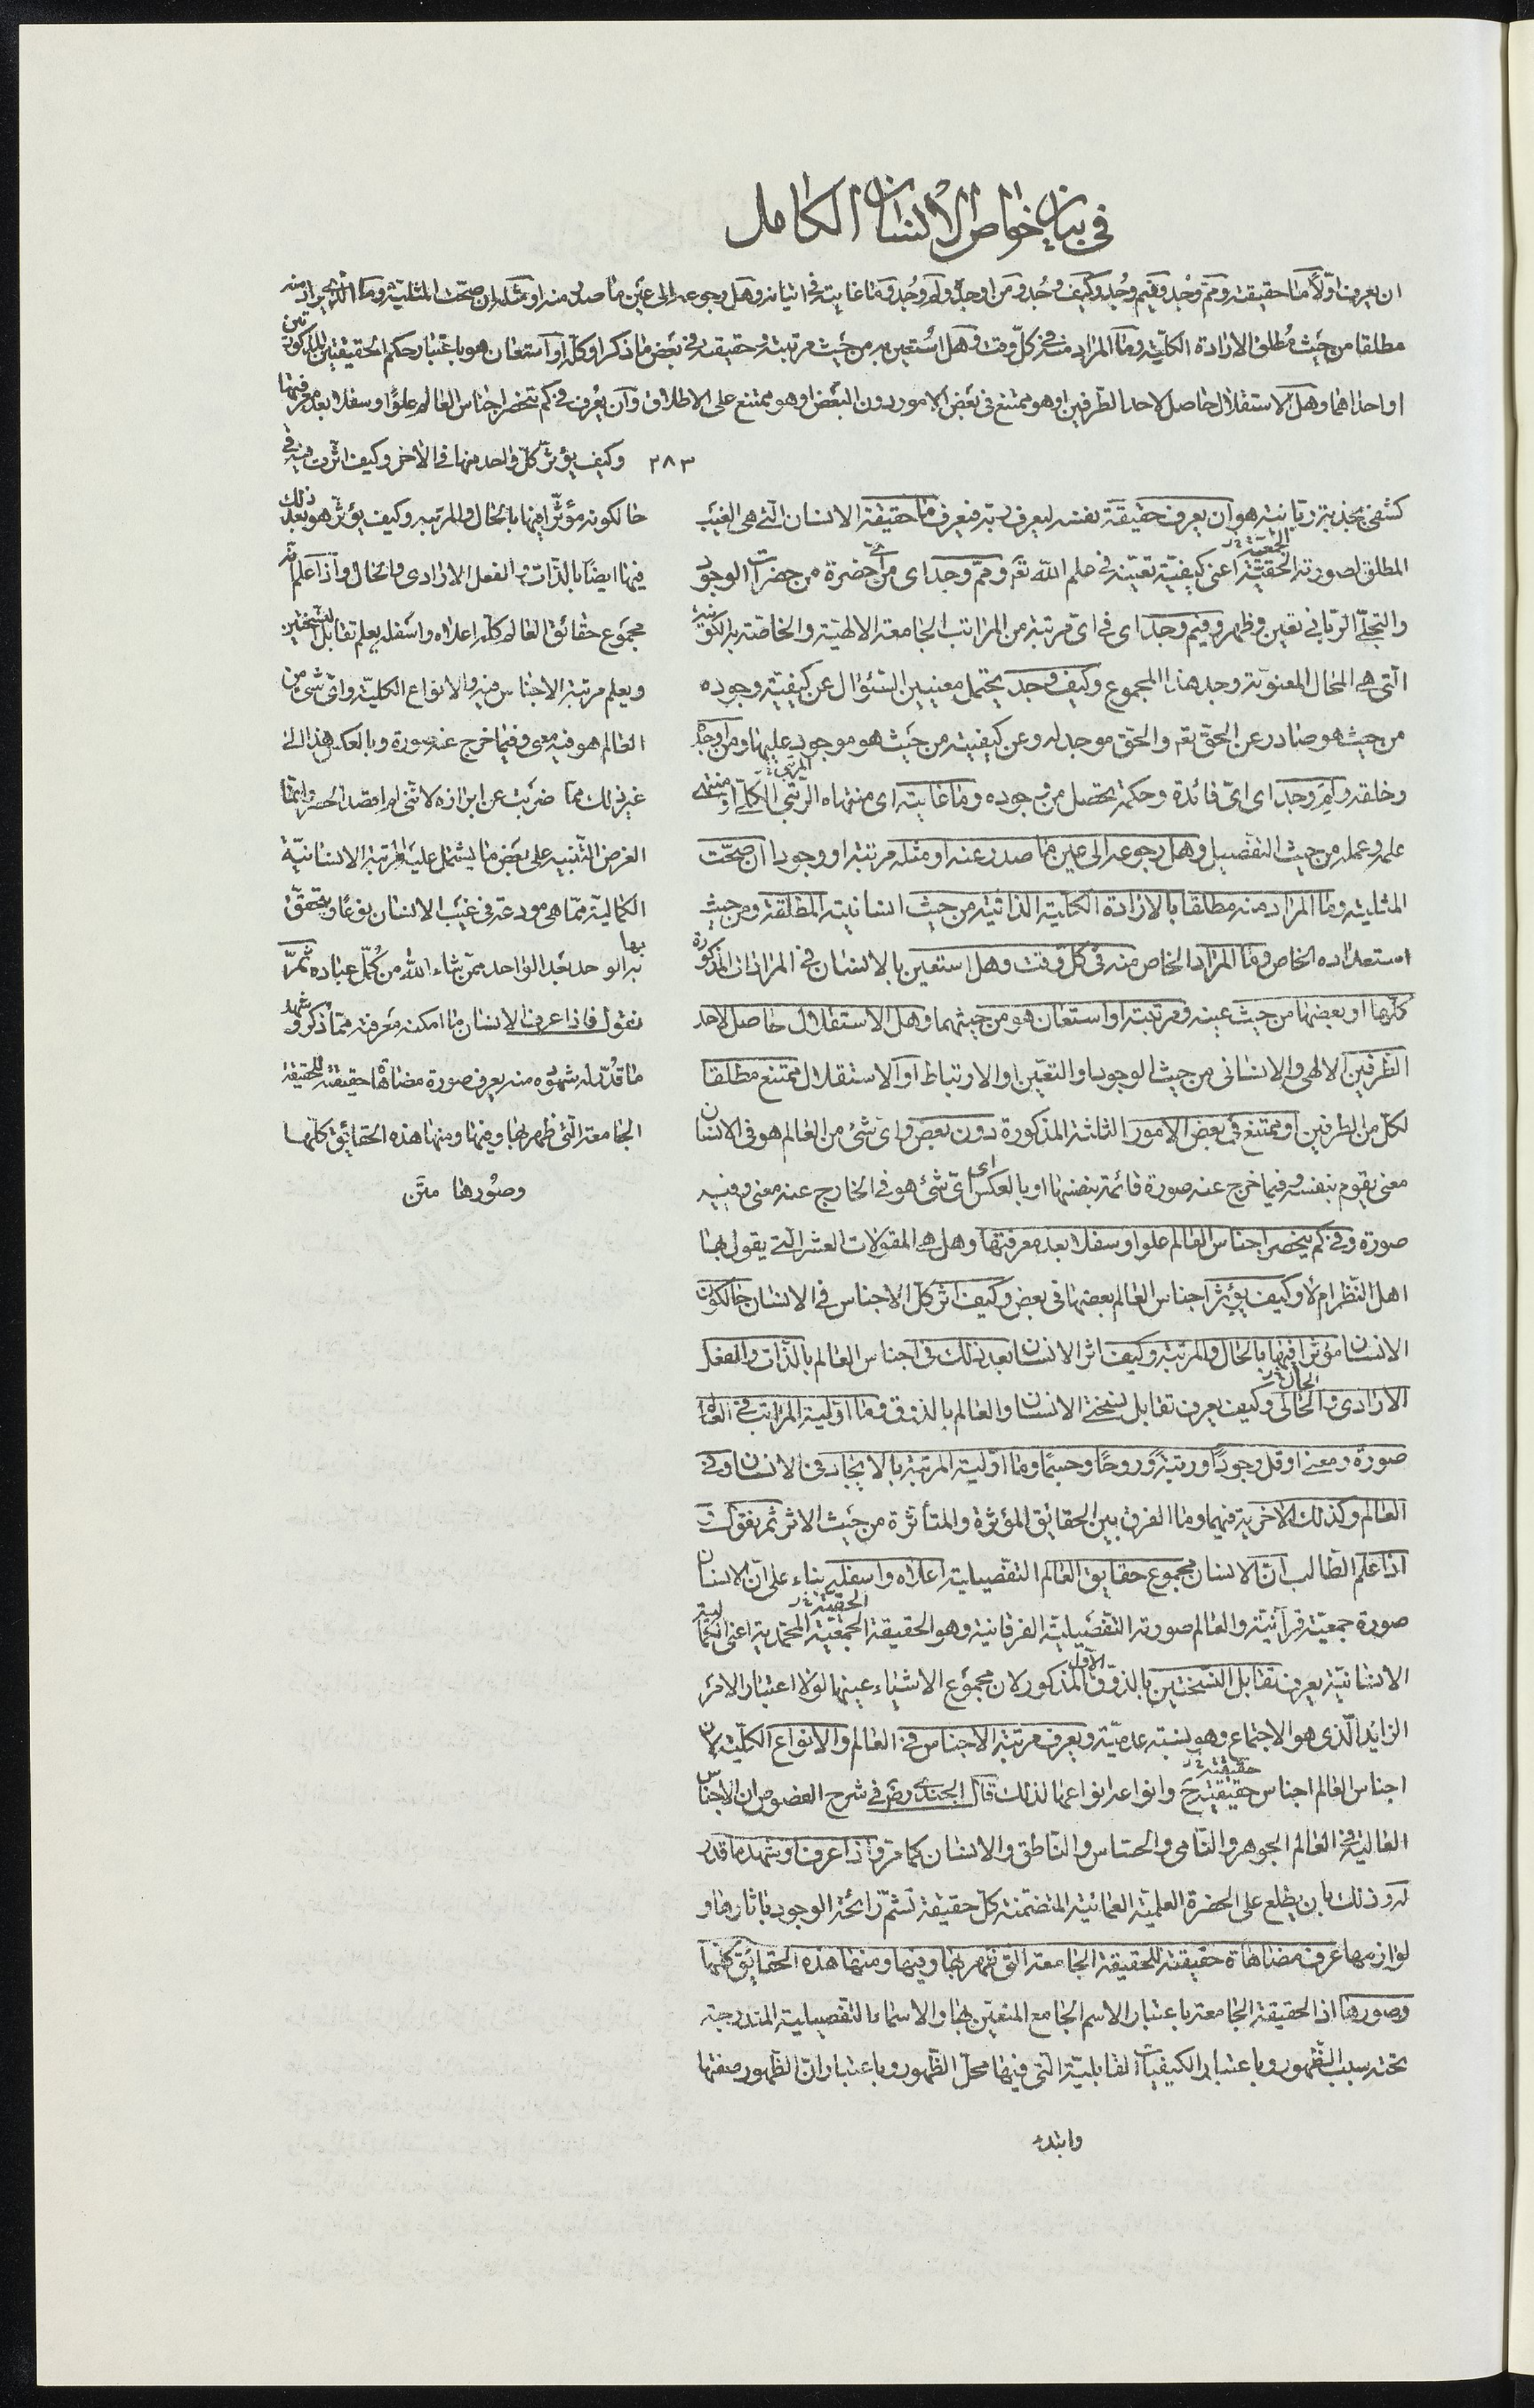 في بيان خواص الانسان الكامل
ان يعرف اولا ما حقيقته ومم وجد وفيم وجد وكيف وجد ومن اوجده ولم وجد وما غايته في اتيانه وهل رجوعه الى عين ما صدر منه او مثله ان صحت المثلية وما الذي يراد منه
مطلقا من حيث مطلق الارادة الكلية وما المراد منه في كل وقت وهل استعين به من حيث مرتبته وحقيقته في بعض ما ذكر او كله او استعان هو باعتبار حكم الحقيقتين المذكورتين
او احداهما وهل الاستقلال حاصل لاحد الطرفين او هو ممتنع في بعض الامور دون البعض او هو ممتنع على الاطلاق وان يعرف في كم تنحصر اجناس العالم علوا وسفلا بعد معرفتها
٢٨٣ وكيف يؤثر كل واحد منها في الآخر وكيف اثرت فيه في
حال كونه مؤثرا فيها بالحال والمرتبة وكيف يؤثر هو بعد ذلك
فيها ايضا بالذات والفعل الارادي والحال واذا علم انه
مجموع حقائق العالم كله اعلاه واسفله يعلم تقابل النسختين
ويعلم مرتبة الاجناس فيه والانواع الكلية واي شيء من
العالم هو فيه معنى وفيما خرج عنه صورة وبالعكس هذا الى
غير ذلك مما ضربت عن ايراده لاني لم اقصد الحصر وانما
الغرض التنبيه على بعض ما يشتمل عليه المرتبة الانسانية
الكمالية مما هي مودعة في غيب الانسان نوعا ويتحقق
بها الواحد بعد الواحد ممن شاء الله من كمل عباده ثم
نقول فاذا عرف الانسان ما امكنه معرفته مما ذكر وشهد
ما قدر له شهوده منه يعرف صورة مضاهاة حقيقته للحقيقة
الجامعة التي ظهر بها وفيها ومنها هذه الحقائق كلها
وصورها متن
كشفي بجذبة ربانية هو ان يعرف حقيقة نفسه ليعرف ربه فيعرف ما حقيقة الانسان التي هي الغيب
المطلق لصورته الحقية الجمعية اعني كيفية تعينه في علم الله تعم ومم وجد اى من اي حضرة من حضرات الوجود
والتجلي الرباني تعين وظهر وفيم وجد اى في اى مرتبة من المراتب الجامعة الالهية والخاصة بالكونية
التي هي المحال المعنوية وجد هذا المجموع وكيف وجد يحتمل معنيين السؤال عن كيفية وجوده
من حيث هو صادر عن الحق تعم والحق موجد له وعن كيفيته من حيث هو موجود عليها ومن اوجده
وخلقه ولم وجد اى اي فائدة وحكمة يحصل من وجوده وما غايته اى منتهاه الرتبي المرتبي الكلي او منتهى
علمه وعمله من حيث التفصيل وهل رجوعه الى عين ما صدر عنه او مثله مرتبة او وجودا ان صحت
المثلية وما المراد منه مطلقا بالارادة الكلية الذاتية من حيث انسانيته المطلقة ومن حيث
استعداده الخاص وما المراد الخاص منه في كل وقت وهل استعين بالانسان في المرادات المذكورة
كلها او بعضها من حيث عينه ومرتبته او استعان هو من حيثهما وهل الاستقلال حاصل لاحد
الطرفين الالهي والانساني من حيث الوجود او التعين او الارتباط او الاستقلال ممتنع مطلقا
لكل من الطرفين او ممتنع في بعض الامور الثلثة المذكورة دون بعض واى شيء من العالم هو في الانسان
معنى يقوم بنفسه وفيما خرج عنه صورة قائمة بنفسها او بالعكس اى اي شيء هو في الخارج عنه معنى وفيه
صورة وفي كم ينحصر اجناس العالم علوا وسفلا بعد معرفتها وهل هي المقولات العشر التي يقول بها
اهل النظر ام لا وكيف يؤثر اجناس العالم بعضها في بعض وكيف اثر كل الاجناس في الانسان حال كون
الانسان مؤثرا فيها بالحال والمرتبة وكيف اثر الانسان بعد ذلك في اجناس العالم بالذات والفعل
الارادي والحالي الحال وكيف يعرف تقابل نسختي الانسان والعالم بالذوق وما اولية المراتب في العالم
صورة ومعنى اوقل وجودا ورتبة وروحا وجسما وما اولية المرتبة بالايجاد في الانسان وفي
العالم وكذلك الآخرية فيهما وما الفرق بين الحقايق المؤثرة والمتأثرة من حيث الاثر ثم نقول
اذا علم الطالب ان الانسان مجموع حقايق العالم التفصيلية اعلاه واسفله بناء على ان الانسان
صورة جمعية قرآنية والعالم صورته التفصيلية الفرقانية وهو الحقيقة الجمعية الحقية المحمدية اعني الكمالية
الانسانية يعرف تقابل النسختين بالذوق الاول المذكور لان مجموع الاشياء عينها لولا اعتبار الامر
الزايد الذي هو الاجتماع وهو نسبته عدمية ويعرف مرتبة الاجناس في العالم والانواع الكلية لان
اجناس العالم اجناس حقيقية حقيقته ح وانواعه انواعها لذلك قال الجندي رض في شرح الفصوص ان الاجناس
العالية في العالم الجوهر والنامي والحساس والناطق والانسان كما مر واذا عرف او شهد ما قدر
له وذلك بان يطلع على الحضرة العلمية العمائية المتضمنة كل حقيقة تشم رائحة الوجود باثارها و
لوازمها عرف مضاهاة حقيقته للحقيقة الجامعة التي ظهر بها وفيها ومنها هذه الحقايق كلها
وصورها اذ الحقيقة الجامعة باعتبار الاسم الجامع المتعين بها والاسماء التفصيلية المندرجة
تحته سبب الظهور وباعتبار الكيفيات القابلية التي فيها محل الظهور وباعتبار ان الظهور صفتها